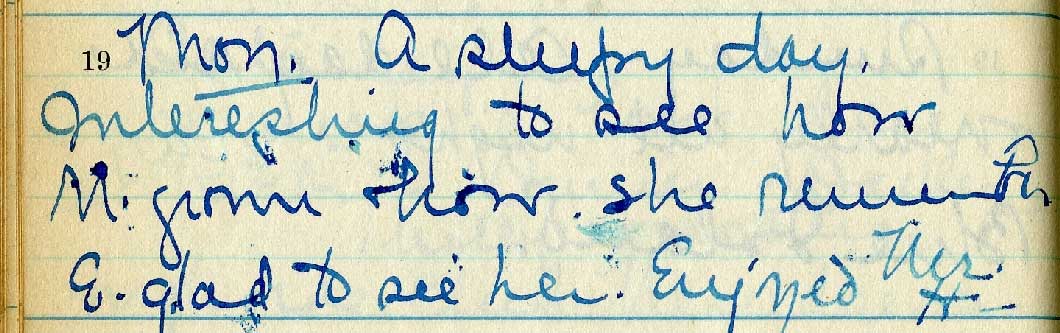 19 Mon. A sleepy day.
Interesting to see how
M. grown & how she remember
E. glad to see her. Enjoyed Mr. H